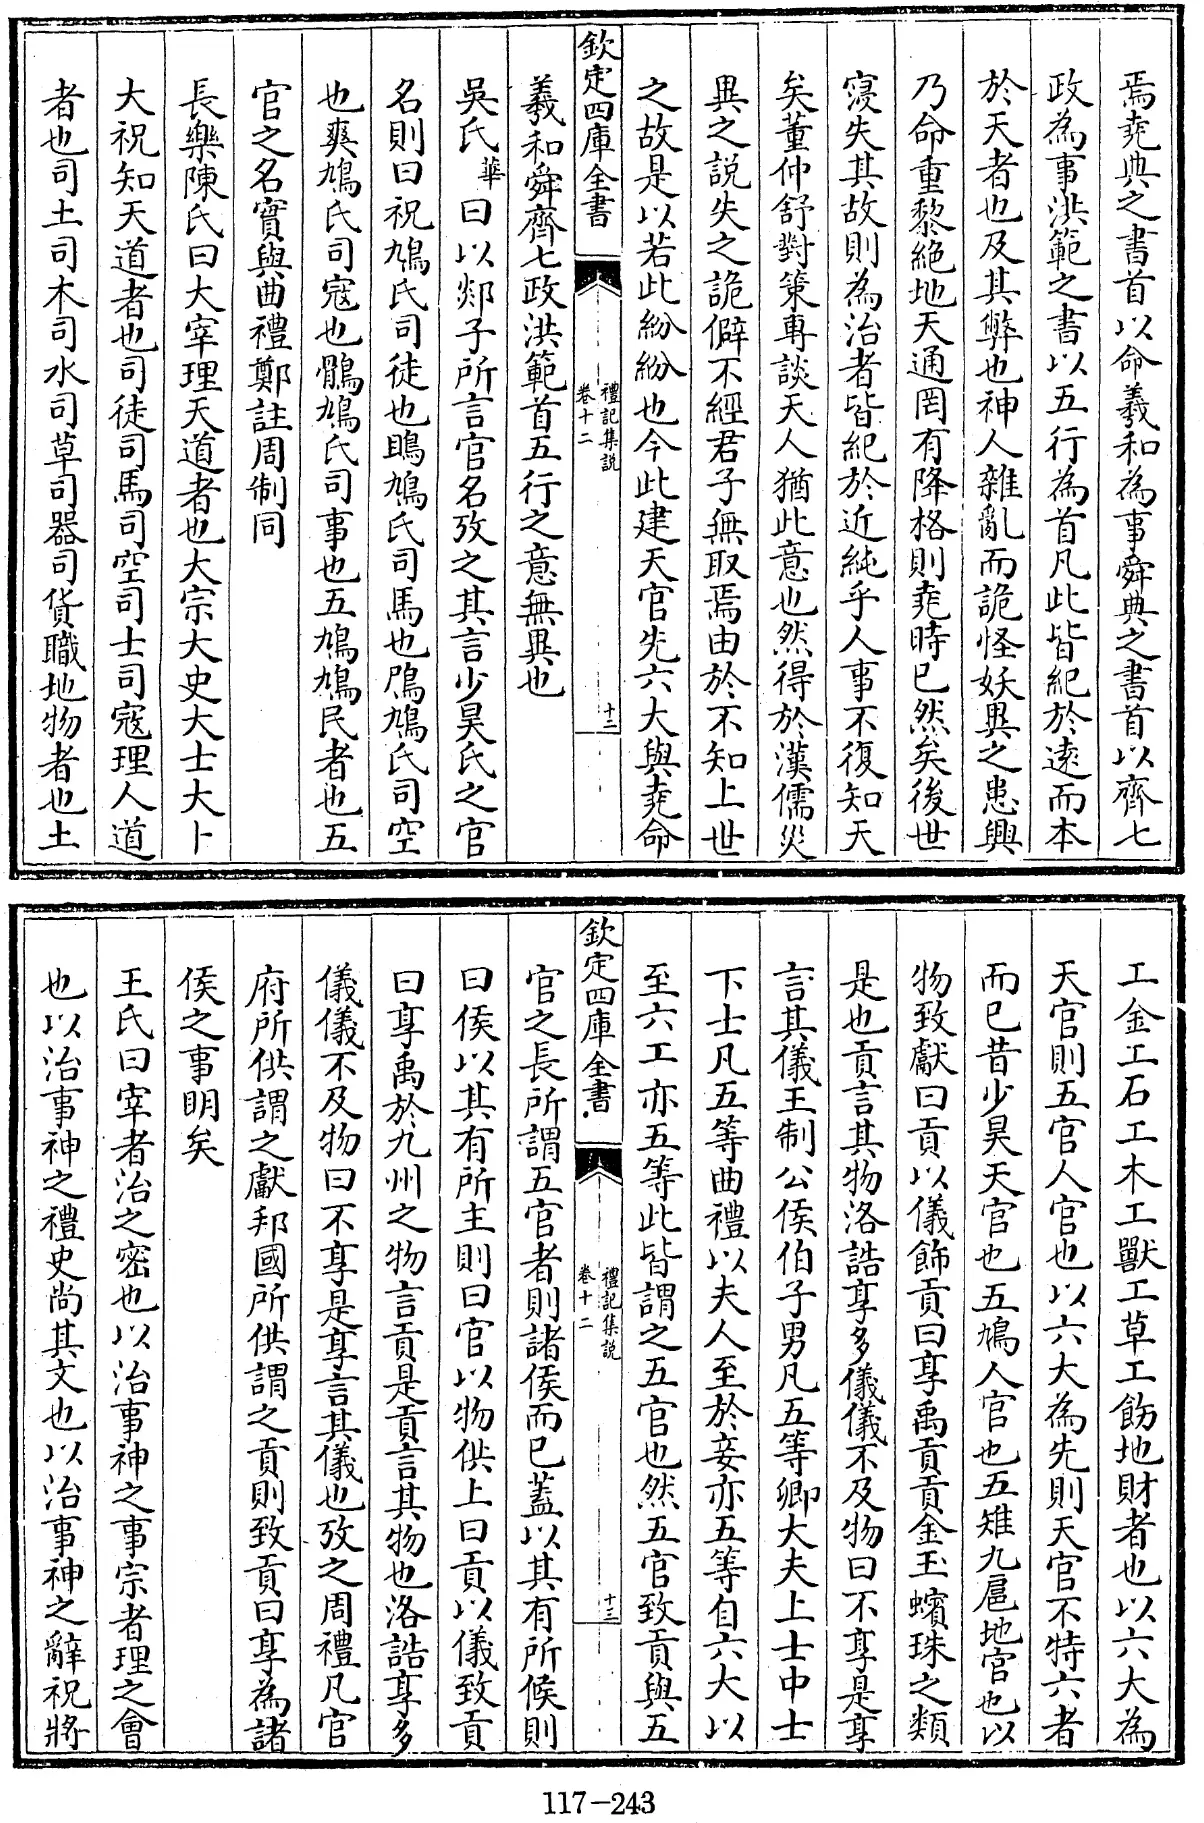 焉堯典之書首以命羲和為事舜典之書首以齊七
政為事洪範之書以五行為首凡此皆紀於遠而本
於天者也及其弊也神人雜亂而詭怪妖異之患興
乃命重黎絶地天通罔有降格則堯時已然矣後世
寖失其故則為治者皆紀於近純乎人事不復知天
矣董仲舒對策専談天人猶此意也然得於漢儒災
異之説失之詭僻不經君子無取焉由於不知上世
之故是以若此紛紛也今此建天官先六大與堯命
欽定四庫全書
禮記集説
卷十二
十二
羲和舜齊七政洪範首五行之意無異也
吳氏華曰以郯子所言官名攷之其言少昊氏之官
名則曰祝鳩氏司徒也鴡鳩氏司馬也鳲鳩氏司空
也爽鳩氏司寇也鶻鳩氏司事也五鳩鳩民者也五
官之名實與曲禮鄭註周制同
長樂陳氏曰大宰理天道者也大宗大史大士大卜
大祝知天道者也司徒司馬司空司士司寇理人道
者也司土司木司水司草司器司貨職地物者也土
工金工石工木工獸工草工飭地財者也以六大為
天官則五官人官也以六大為先則天官不特六者
而已昔少昊天官也五鳩人官也五雉九扈地官也以
物致獻曰貢以儀飾貢曰享禹貢貢金玉蠙珠之類
是也貢言其物洛誥享多儀儀不及物曰不享是享
言其儀王制公侯伯子男凡五等卿大夫上士中士
下士凡五等曲禮以夫人至於妾亦五等自六大以
至六工亦五等此皆謂之五官也然五官致貢與五
欽定四庫全書
禮記集説
卷十二
十三
官之長所謂五官者則諸侯而已蓋以其有所候則
曰侯以其有所主則曰官以物供上曰貢以儀致貢
曰享禹於九州之物言貢是貢言其物也洛誥享多
儀儀不及物曰不享是享言其儀也攷之周禮凡官
府所供謂之獻邦國所供謂之貢則致貢曰享為諸
侯之事明矣
王氏曰宰者治之宻也以治事神之事宗者理之會
也以治事神之禮史尚其文也以治事神之辭祝將
117-243